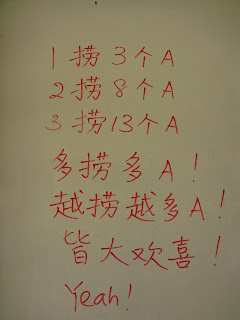 1 捞 3 个 A
2 捞 8 个 A
3 捞 13 个 A
多捞多 A !
越捞越多 A !
皆大欢喜 !
Yeah!